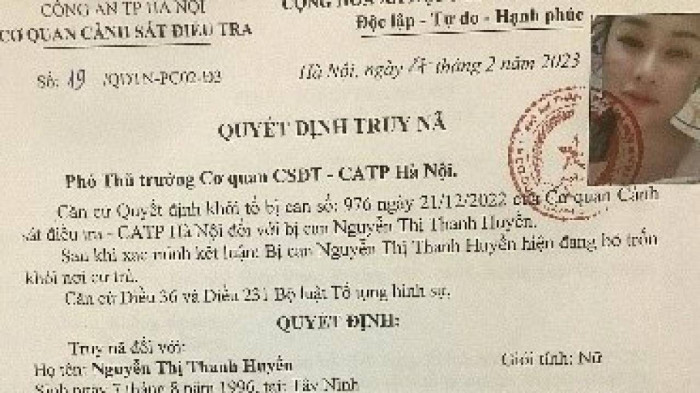 CÔNG AN TP HÀ NỘI
CƠ QUAN CẢNH SÁT ĐIỀU TRA
Độc lập - Tự do - Hạnh phúc
Số: 19 /QĐTN-PC02-Đ3
Hà Nội, ngày tháng 2 năm 2023
QUYẾT ĐỊNH TRUY NÃ
Phó Thủ trưởng Cơ quan CSĐT - CATP Hà Nội.
Căn cứ Quyết định khởi tố bị can số: 976 ngày 21/12/2022 của Cơ quan Cảnh
sát điều tra - CATP Hà Nội đối với bị can Nguyễn Thị Thanh Huyền.
Sau khi xác minh kết luận: Bị can Nguyễn Thị Thanh Huyền hiện đang bỏ trốn
khỏi nơi cư trú.
Căn cứ Điều 36 và Điều 231 Bộ luật Tố tụng hình sự,
QUYẾT ĐỊNH:
Truy nã đối với:
Họ tên: Nguyễn Thị Thanh Huyền Giới tính: Nữ
Sinh ngày 7 tháng 8 năm 1996, tại: Tây Ninh